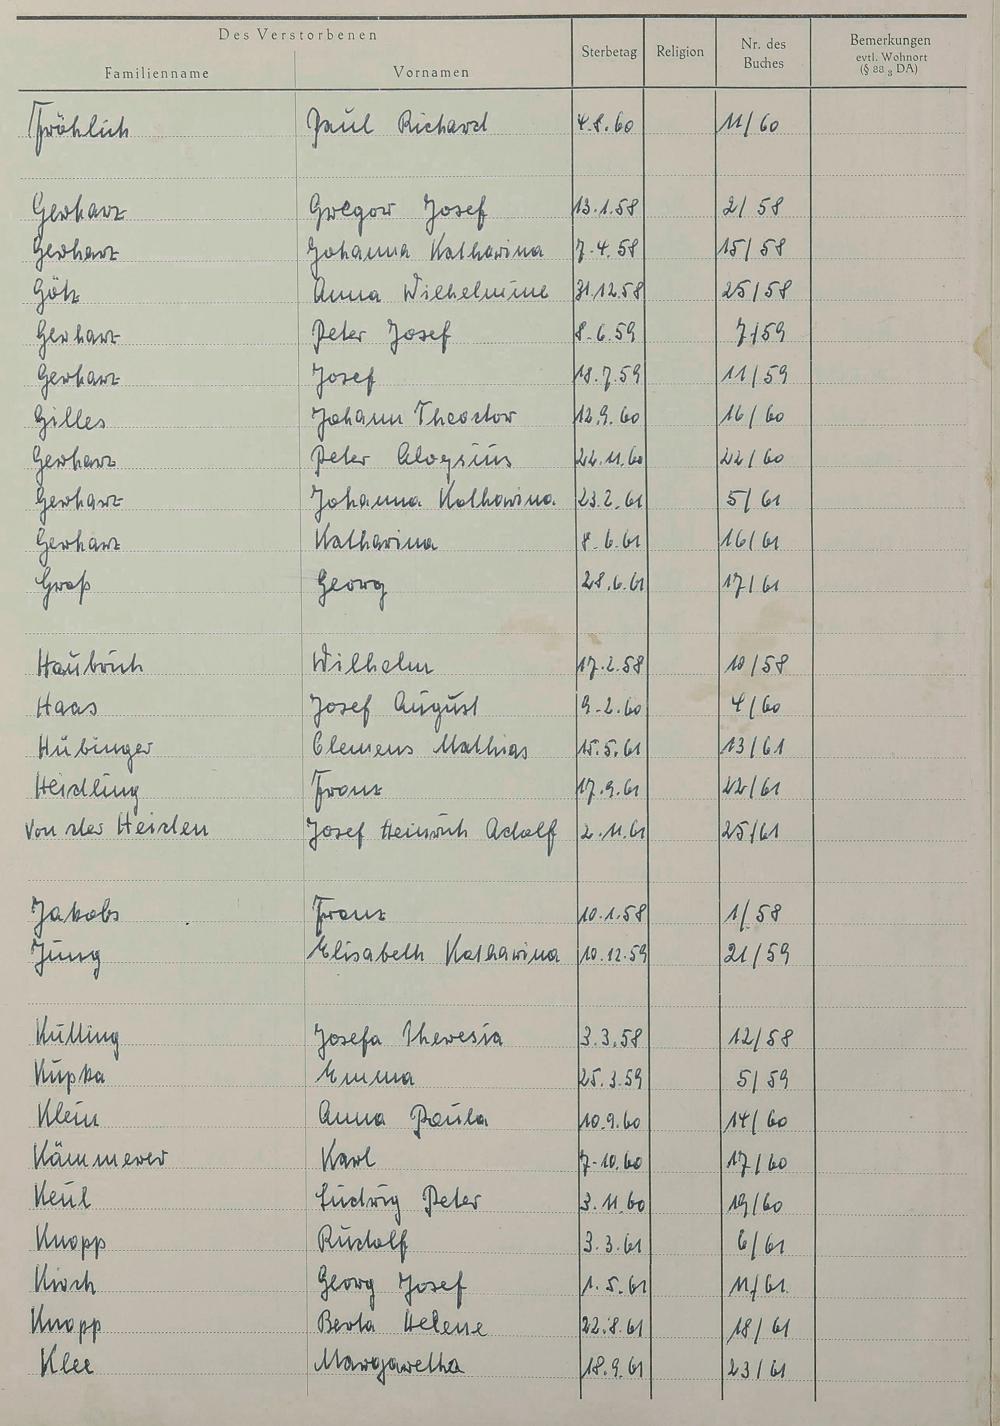 Des Verstorbenen
Familienname Vornamen Sterbetag Religion Nr. des Buches Bemerkungen evtl. Wohnort (§ 88 3 DA)
Fröhlich Paul Richard 4.8.60 11/60
Gerharz Gregor Josef 13.1.58 2/58
Gerharz Johanna Katharina 7.4.58 15/58
Götz Anna Wilhelmine 31.12.58 25/58
Gerharz Peter Josef 8.6.59 7/59
Gerharz Josef 18.7.59 11/59
Gilles Johann Theodor 12.9.60 16/60
Gerharz Peter Aloysius 22.11.60 22/60
Gerharz Johanna Katharina 23.2.61 5/61
Gerharz Katharina 8.6.61 16/61
Groß Georg 28.6.61 17/61
Haubrich Wilhelm 17.2.58 10/58
Haas Josef August 9.2.60 4/60
Hübinger Clemens Mathias 15.5.61 13/61
Heidling Franz 17.9.61 22/61
von der Heiden Josef Heinrich Adolf 2.11.61 25/61
Jakobs Franz 10.1.58 1/58
Jung Elisabeth Katharina 10.12.59 21/59
Külling Josefa Theresia 3.3.58 12/58
Kupka Emma 25.3.59 5/59
Klein Anna Paula 10.9.60 14/60
Kämmerer Karl 7.10.60 17/60
Keul Ludwig Peter 3.11.60 19/60
Knopp Rudolf 3.3.61 6/61
Kirch Georg Josef 1.5.61 11/61
Knopp Berta Helene 22.8.61 18/61
Klee Margaretha 18.9.61 23/61